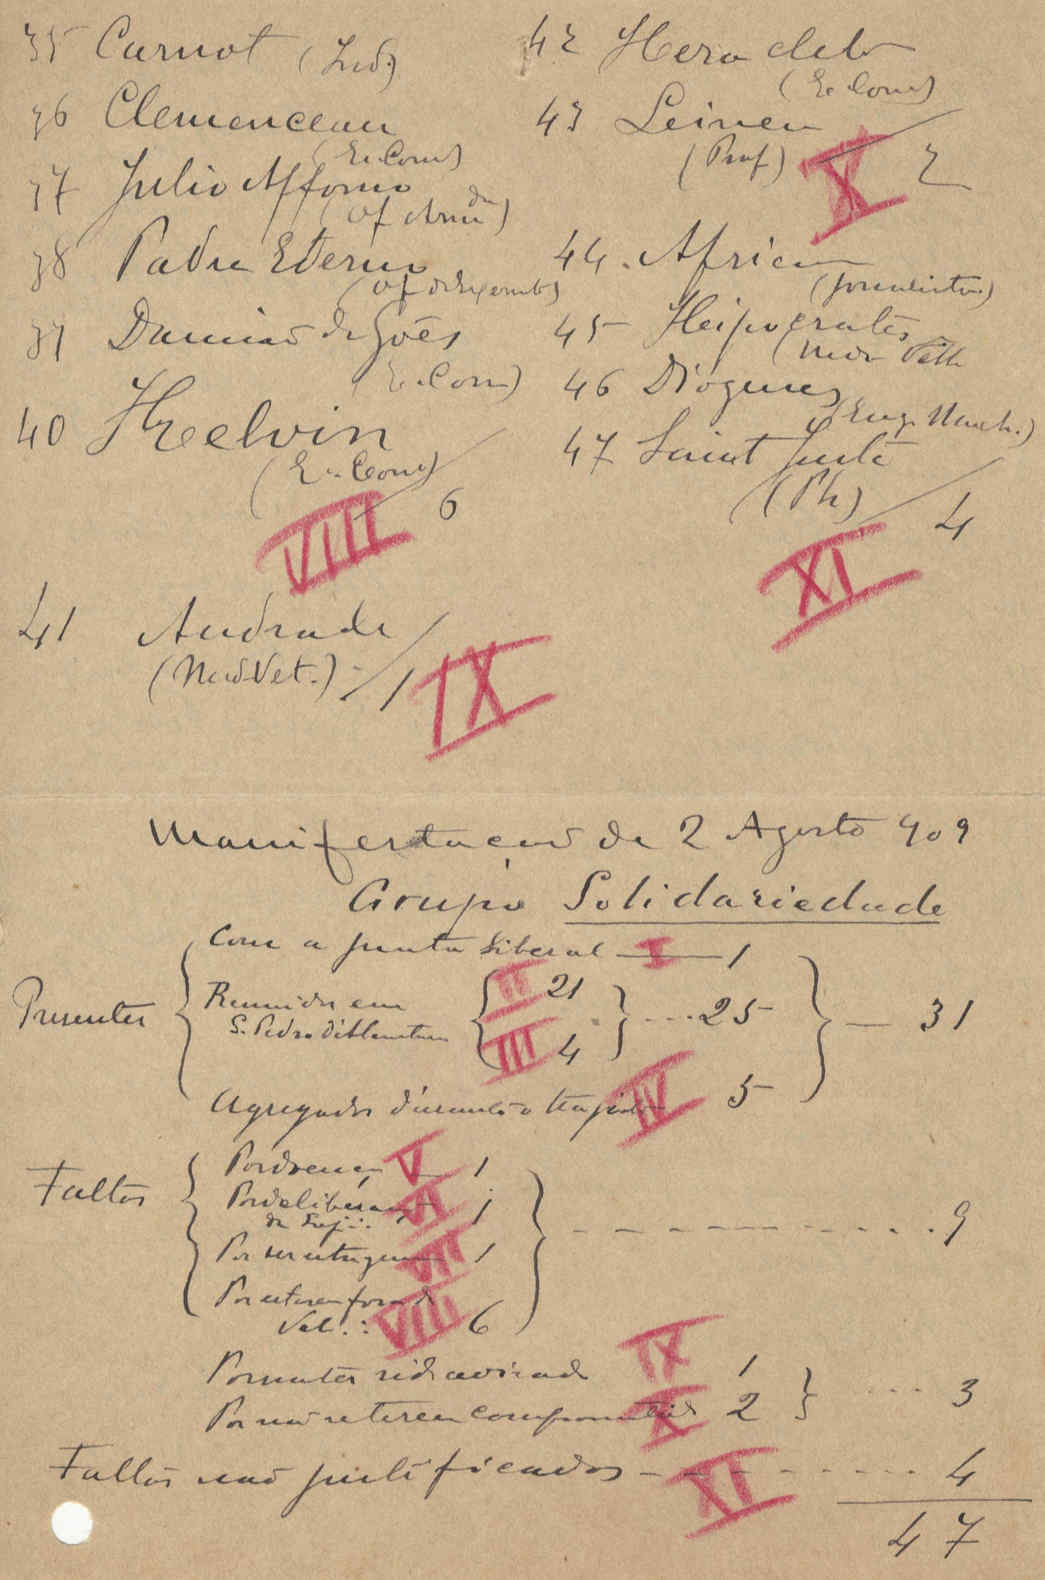 35 Carnot (Ind.)
36 Clemenceau
(E. Com)
37 Julio Affonso
(Of Arm da)
38 Padre Eterno
(Of
39 Damião de Goes
(E. Com)
40 Kelvin
(E. Com)
6
VIII
41 Andrade
(Med. Vet.) 1
IX
42 Heraclito
(E. Com)
43
(Prof)
X 2
44. Africano
(Jornalista)
45 Heipocrates
(Med. Vet.
46 Diogenes
(Eng. Mach.)
47 Saint Juste
(Ph)
4
XI
Manifestação de 2 Agosto 909
Grupo Solidariedade
Presentes
Com a Junta Liberal — I — 1
Reunidos em
S. Pedro d'Alcantara
II 21
III 4
... 25
— 31
Agregados durante o trajeto IV 5
Faltas
Por doença V 1
Por deliberação VI 1
Por ser estrangeiro VII 1
Por estarem fora de
Val.: VIII 6
9
Por não ter sido avisado IX 1
Por não terem X 2
... 3
Faltas não justificadas XI 4
47